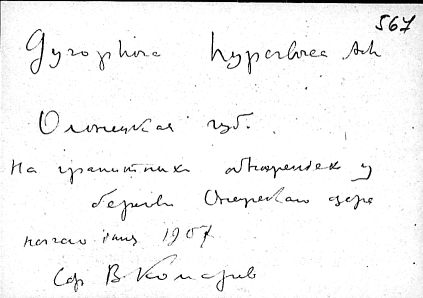 567
Gyrophora hyperborea Ach
Олонецкая губ.
На гранитных обнажениях у
берегов Онежскаго озера
начало июня 1907
Соб В Комаров